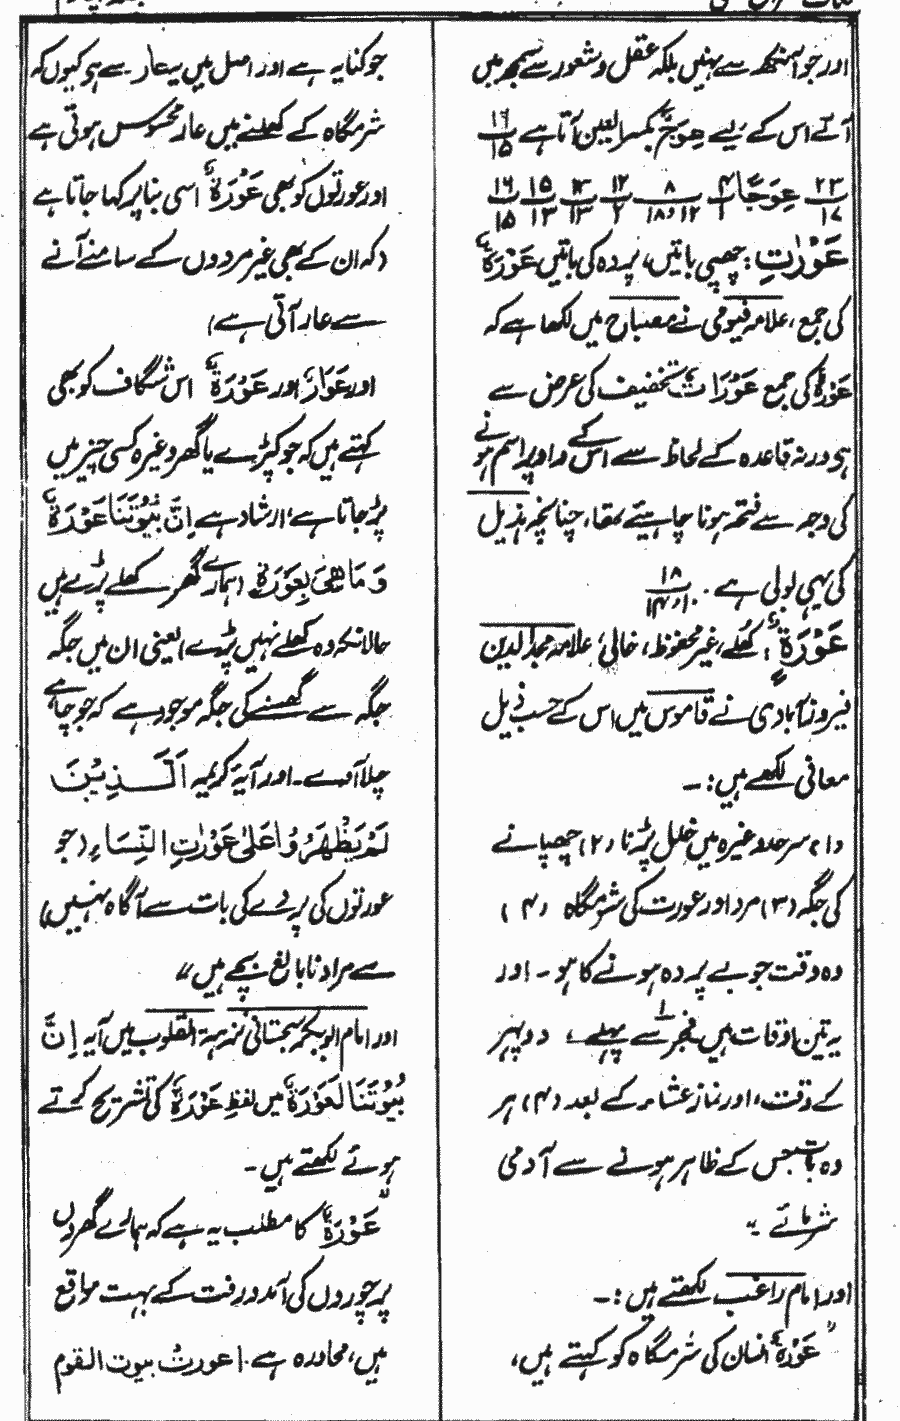 اور جو آنکھ سے نہیں بلکہ عقل و شعور سے سمجھ میں
آئے اس کے لیے عِوَجٌ بکسر العین آتا ہے ۱۶/۱۵
عِوَجًا ۴/۱ ۸/۱۸،۱۲ ۱۲/۲ ۱۳/۱۳ ۱۵/۱۳ ۱۶/۱۵ ۲۳/۱۷
عَوْرٰتِ: چھپی باتیں، پردہ کی باتیں عَوْرَةٌ
کی جمع، علامہ فیومی نے مصباح میں لکھا ہے کہ
عَوْرَةٌ کی جمع عَوْرَاتٌ تخفیف کی غرض سے
ہی ورنہ قاعدہ کے لحاظ سے اس کے واو پر اسم ہونے
کی وجہ سے فتحہ ہونا چاہیئے تھا، چنانچہ ہذیل
کی یہی بولی ہے۔ ۱۸/۱۴،۱۰
عَوْرَةٌ: کھلے، غیر محفوظ، خالی، علامہ مجد الدین
فیروز آبادی نے قاموس میں اس کے حسب ذیل
معانی لکھے ہیں:۔
(۱) سرحد وغیرہ میں خلل پڑنا (۲) چھپانے
کی جگہ (۳) مرد اور عورت کی شرمگاہ (۴)
وہ وقت جو بے پردہ ہونے کا ہو۔ اور
یہ تین اوقات ہیں فجر سے پہلے، دوپہر
کے وقت، اور نماز عشاء کے بعد (۴) ہر
وہ بات جس کے ظاہر ہونے سے آدمی
شرمائے"۔
اور امام راغب لکھتے ہیں:۔
"عَوْرَةٌ انسان کی شرمگاہ کو کہتے ہیں،
جو کنایہ ہے اور اصل میں یہ عار سے ہی کیوں کہ
شرمگاہ کے کھلنے میں عار محسوس ہوتی ہے
اور عورتوں کو بھی عَوْرَةٌ اسی بنا پر کہا جاتا ہے
(کہ ان کے بھی غیر مردوں کے سامنے آنے
سے عار آتی ہے)
اور عَوَارٌ اور عَوْرَةٌ اس شگاف کو بھی
کہتے ہیں کہ جو کپڑے یا گھر وغیرہ کسی چیز میں
پڑ جاتا ہے، ارشاد ہے اِنَّ بُيُوْتَنَا عَوْرَةٌ
وَمَا هِيَ بِعَوْرَةٍ (ہمارے گھر کھلے پڑے ہیں
حالانکہ وہ کھلے نہیں پڑے) یعنی ان میں جگہ
جگہ سے گھسنے کی جگہ موجود ہے کہ جو چاہے
چلا آوے۔ اور آیۂ کریمہ اَلَّذِيْنَ
لَمْ يَظْهَرُوْا عَلٰى عَوْرٰتِ النِّسَاءِ (جو
عورتوں کی پردے کی بات سے آگاہ نہیں)
سے مراد نابالغ بچے ہیں"
اور امام ابوبکر سجستانی نزہۃ القلوب میں آیہ اِنَّ
بُيُوْتَنَا عَوْرَةٌ میں لفظ عَوْرَةٌ کی تشریح کرتے
ہوئے لکھتے ہیں۔
"عَوْرَةٌ کا مطلب یہ ہے کہ ہمارے گھروں
پر چوروں کی آمد و رفت کے بہت مواقع
ہیں، محاورہ ہے۔ اعورتْ بیوت القوم